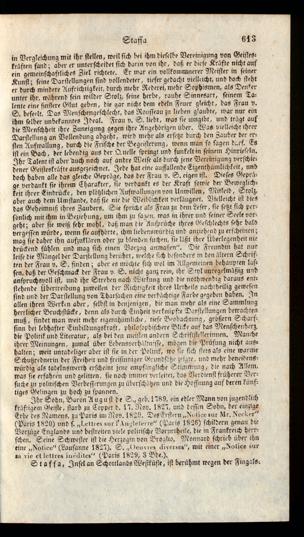 Staffa 613
in Vergleichung mit ihr stellen, weil sich bei ihm dieselbe Vereinigung von Geistes-
kräften fand; aber er unterscheidet sich darin von ihr, daß er diese Kräfte nicht auf
ein gemeinschaftliches Ziel richtete. Er war ein vollkommnerer Meister in seiner
Kunst; seine Darstellungen sind vollendeter, tiefer gedacht vielleicht, und doch steht
er durch mindere Aufrichtigkeit, durch mehr Rednerei, mehr Sophismen, als Denker
unter ihr, während sein wilder Stolz, seine herbe, rauhe Sinnesart, seinem Ta-
lente eine finstere Glut geben, die gar nicht dem edeln Feuer gleicht, das Frau v.
S. beseelt. Das Menschengeschlecht, das Rousseau zu lieben glaubte, war nur ein
ihm selber unbekanntes Ideal. Frau v. S. liebt, was sie umgibt, und trägt auf
die Menschheit ihre Zuneigung gegen ihre Angehörigen über. Was vielleicht ihrer
Darstellung an Vollendung abgeht, wird mehr als ersetzt durch den Zauber der er-
sten Aufwallung, durch die Frische der Begeisterung, wenn man so sagen darf. Es
ist ein Bach, der lebendig aus der Quelle springt und funkelt in seinen Dünsteln.
Ihr Talent ist aber auch noch auf andre Weise als durch jene Vereinigung verschie-
dener Geisteskräfte ausgezeichnet. Jede hat eine auffallende Eigenthümlichkeit, und
doch haben alle das gleiche Gepräge, das der Frau v. S. eigen ist. Dieses Geprä-
ge verdankt sie ihrem Charakter, sie verdankt es der Kraft sowie der Beweglich-
keit ihrer Eindrücke, den plötzlichen Aufwallungen von Unwillen, Mitleid, Stolz,
aber auch dem Umstande, daß sie nie die Weiblichkeit verleugnet. Vielleicht ist dies
das Geheimniß ihres Zaubers. Sie spricht als Frau zu dem Leser, sie setzt sich per-
sönlich mit ihm in Beziehung, um ihm zu sagen, was in ihrer und seiner Seele vor-
geht; aber sie weiß sehr wohl, daß man die Ansprüche ihres Geschlechts sehr bald
vergessen würde, wenn sie aufhörte, ihm liebenswürdig und anziehend zu erscheinen;
mag sie daher ihn aufzuklären oder zu blenden suchen, sie läßt ihre Überlegenheit nie
drückend fühlen und maß sich einen Vorzug an. Die Fremden hat nur
leise die Mängel der Darstellung berührt, welche sich besonders in den ältern Schrif-
ten der Frau v. S. finden; aber er möchte sich wol im Allgemeinen behaupten las-
sen, daß der Geschmack der Frau v. S. nicht ganz rein, ihr Styl unregelmäßig und
anspruchsvoll ist, und ihr Streben nach Wirkung und die nothwendig daraus ent-
stehende Übertreibung zuweilen der Richtigkeit ihres Urtheils nachtheilig gewesen
sind und der Darstellung von Thatsachen eine verdächtige Farbe gegeben haben. In
allen ihren Werken aber, selbst in denjenigen, die man mehr als eine Sammlung
herrlicher Bruchstücke, denn als durch Einheit verknüpfte Darstellungen betrachten
muß, findet man weit mehr eigenthümliche, tiefe Beobachtung, größern Scharf-
sinn bei lebhafter Einbildungskraft, philosophischere Blicke aus das Menschenherz,
die Politik und Literatur, als bei den meisten andern Schriftstellerinnen. Manche
ihrer Meinungen, zumal über Gegenstände, mögen die Prüfung nicht aus-
halten; weit untadeliger aber ist sie in der Politik, wo sie sich stets als eine warme
Schutzrednerin der Freiheit und freisinniger Grundsätze zeigte, und mehr bewun-
würdig als tadelnswerth erscheint jene empfängliche Stimmung, die nach Allem,
was sie erfahren und gelitten, sie noch immer verleitete, das Verdienst früherer Ver-
suche zu politischen Verbesserungen zu überschätzen und die Hoffnung auf deren künf-
tiges Gelingen zu hoch zu spannen.
Ihr Sohn, Baron August de S., geb. 1789, ein edler Mann von jugendlich
kräftigem Geiste, starb zu Coppet d. 17. Nov. 1827, und dessen Sohn, der einzige
Erbe des Namens, zu Paris im Nov. 1829. Des Erstern „Notice sur Mr. Necker"
(Paris 1820) und s. „Lettres sur l'Angleterre" (Paris 1826) schildern genau die
Vorzüge Englands und bestreiten viele politische Vorurtheile, die in Frankreich herr-
schen. Seine Schwester ist die Herzogin von Broglio. Monnard schrieb über ihn
eine „Notice" (Lausanne 1827). S. „Oeuvres diverses", mit einer „Notice sur
sa vie et lettres inédites" (Paris 1829, 3 Bde.).
Staffa, Insel an Schottlands Westküste, ist berühmt wegen der Fingals-